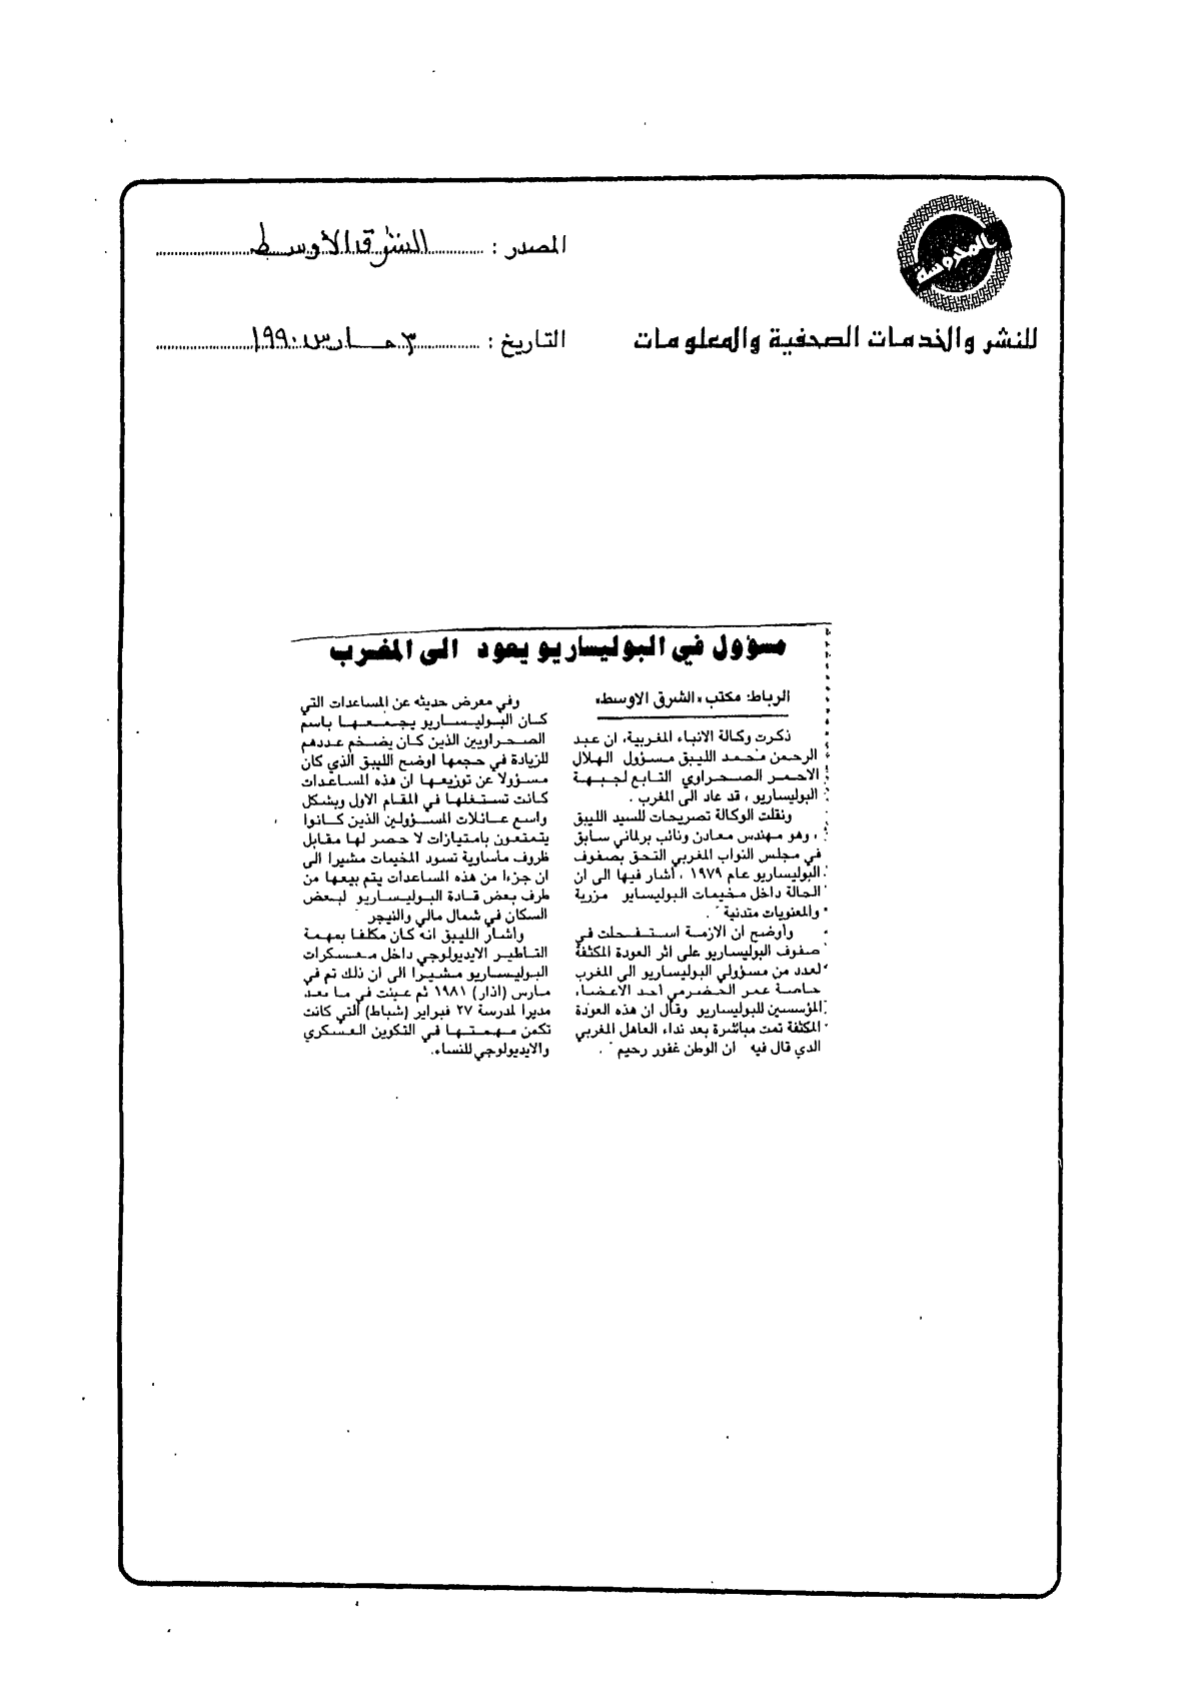 المحروسة
للنشر والخدمات الصحفية والمعلومات
المصدر : الشرق الأوسط
التاريخ : ٣ مارس ١٩٩٠
مسؤول في البوليساريو يعود الى المغرب
الرباط: مكتب «الشرق الاوسط»
ذكرت وكالة الانباء المغربية، ان عبد
الرحمن محمد الليبق مسؤول الهلال
الاحمر الصحراوي التابع لجبهة
البوليساريو ، قد عاد الى المغرب .
ونقلت الوكالة تصريحات للسيد الليبق
، وهو مهندس معادن ونائب برلماني سابق
في مجلس النواب المغربي التحق بصفوف
البوليساريو عام ١٩٧٩ ، أشار فيها الى ان
الحالة داخل مخيمات البوليسايو مزرية
والمعنويات متدنية" .
وأوضح ان الازمة استفحلت في
صفوف البوليساريو على اثر العودة المكثفة
لعدد من مسؤولي البوليساريو الى المغرب
خاصة عمر الحضرمي أحد الاعضاء
المؤسسين للبوليساريو وقال ان هذه العودة
المكثفة تمت مباشرة بعد نداء العاهل المغربي
الذي قال فيه ان الوطن غفور رحيم" .
وفي معرض حديثه عن المساعدات التي
كان البوليساريو يجمعها باسم
الصحراويين الذين كان يضخم عددهم
للزيادة في حجمها اوضح الليبق الذي كان
مسؤولا عن توزيعها ان هذه المساعدات
كانت تستغلها في المقام الاول وبشكل
واسع عائلات المسؤولين الذين كانوا
يتمتعون بامتيازات لا حصر لها مقابل
ظروف مأساوية تسود المخيمات مشيرا الى
ان جزءا من هذه المساعدات يتم بيعها من
طرف بعض قادة البوليساريو لبعض
السكان في شمال مالي والنيجر"
واشار الليبق انه كان مكلفا بمهمة
التاطير الايديولوجي داخل معسكرات
البوليساريو مشيرا الى ان ذلك تم في
مارس (اذار) ١٩٨١ ثم عينت في ما بعد
مديرا لمدرسة ٢٧ فبراير (شباط) التي كانت
تكمن مهمتها في التكوين العسكري
والايديولوجي للنساء.